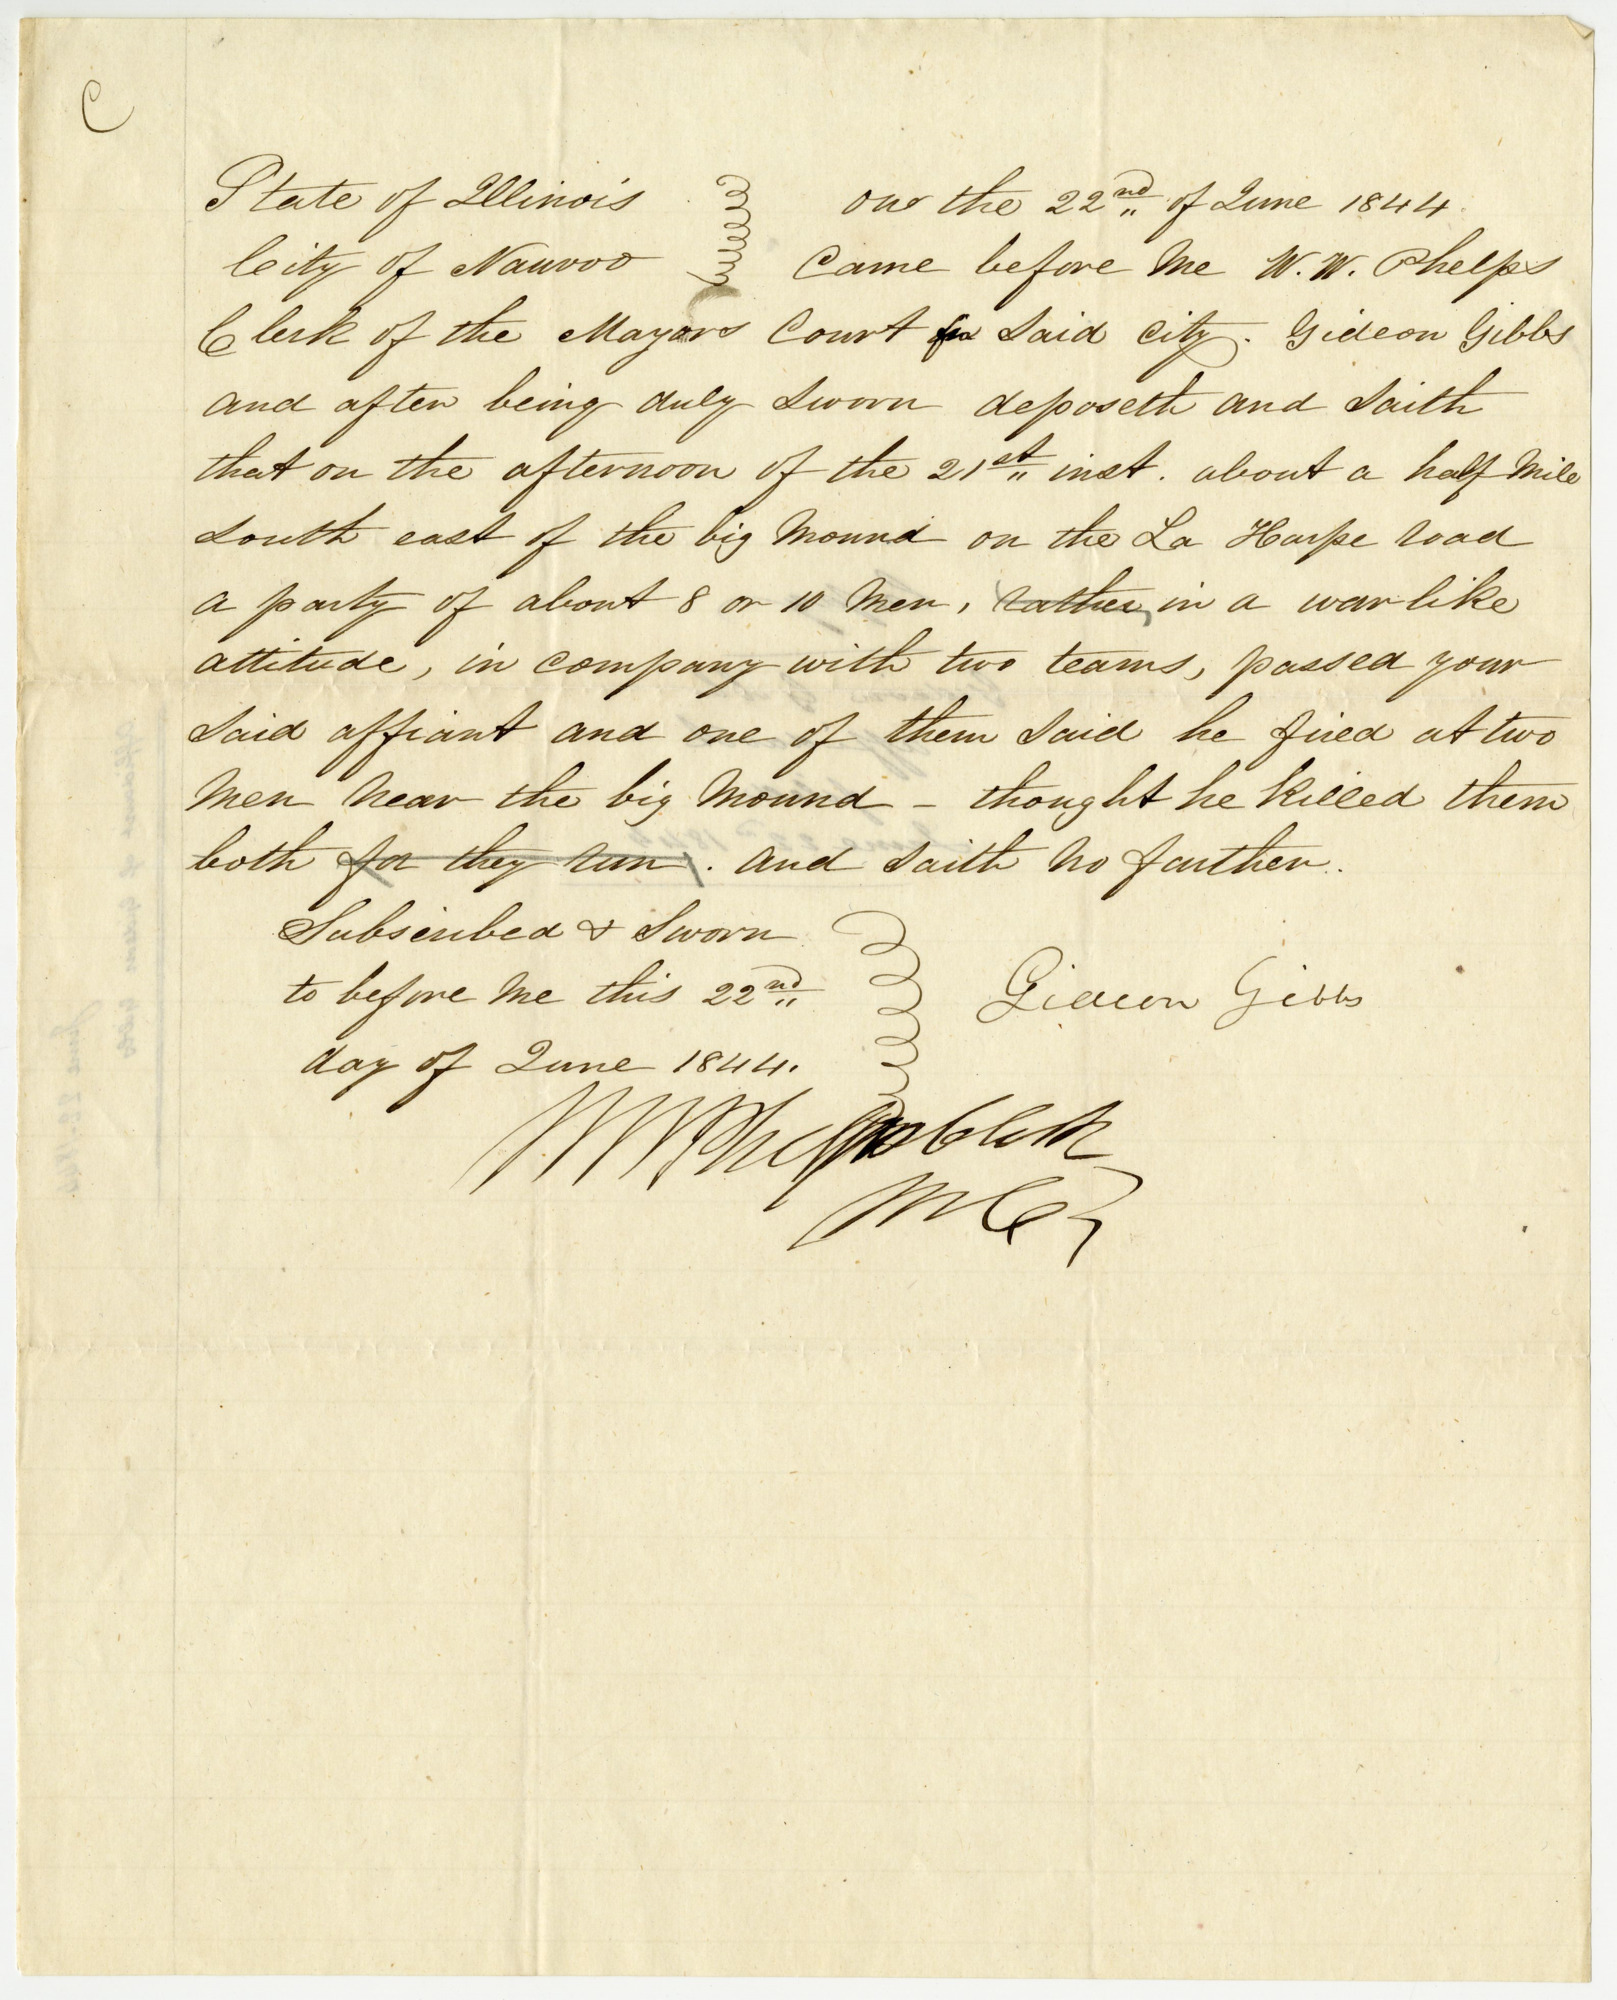 C
State of Illinois on the 22nd of June 1844.
City of Nauvoo came before me W. W. Phelps
Clerk of the Mayors Court for said city. Gideon Gibbs
and after being duly sworn deposeth and saith
that on the afternoon of the 21st inst. about a half mile
south east of the big mound on the La Harpe road
a party of about 8 or 10 men, rather, in a war like
attitude, in company with two teams, passed your
said affiant and one of them said he fired at two
men near the big mound – thought he killed them
both for they run. and saith no farther.
Subscribed & sworn
to before me this 22nd
day of June 1844.
Gideon Gibbs
W W Phelps Clerk
M C